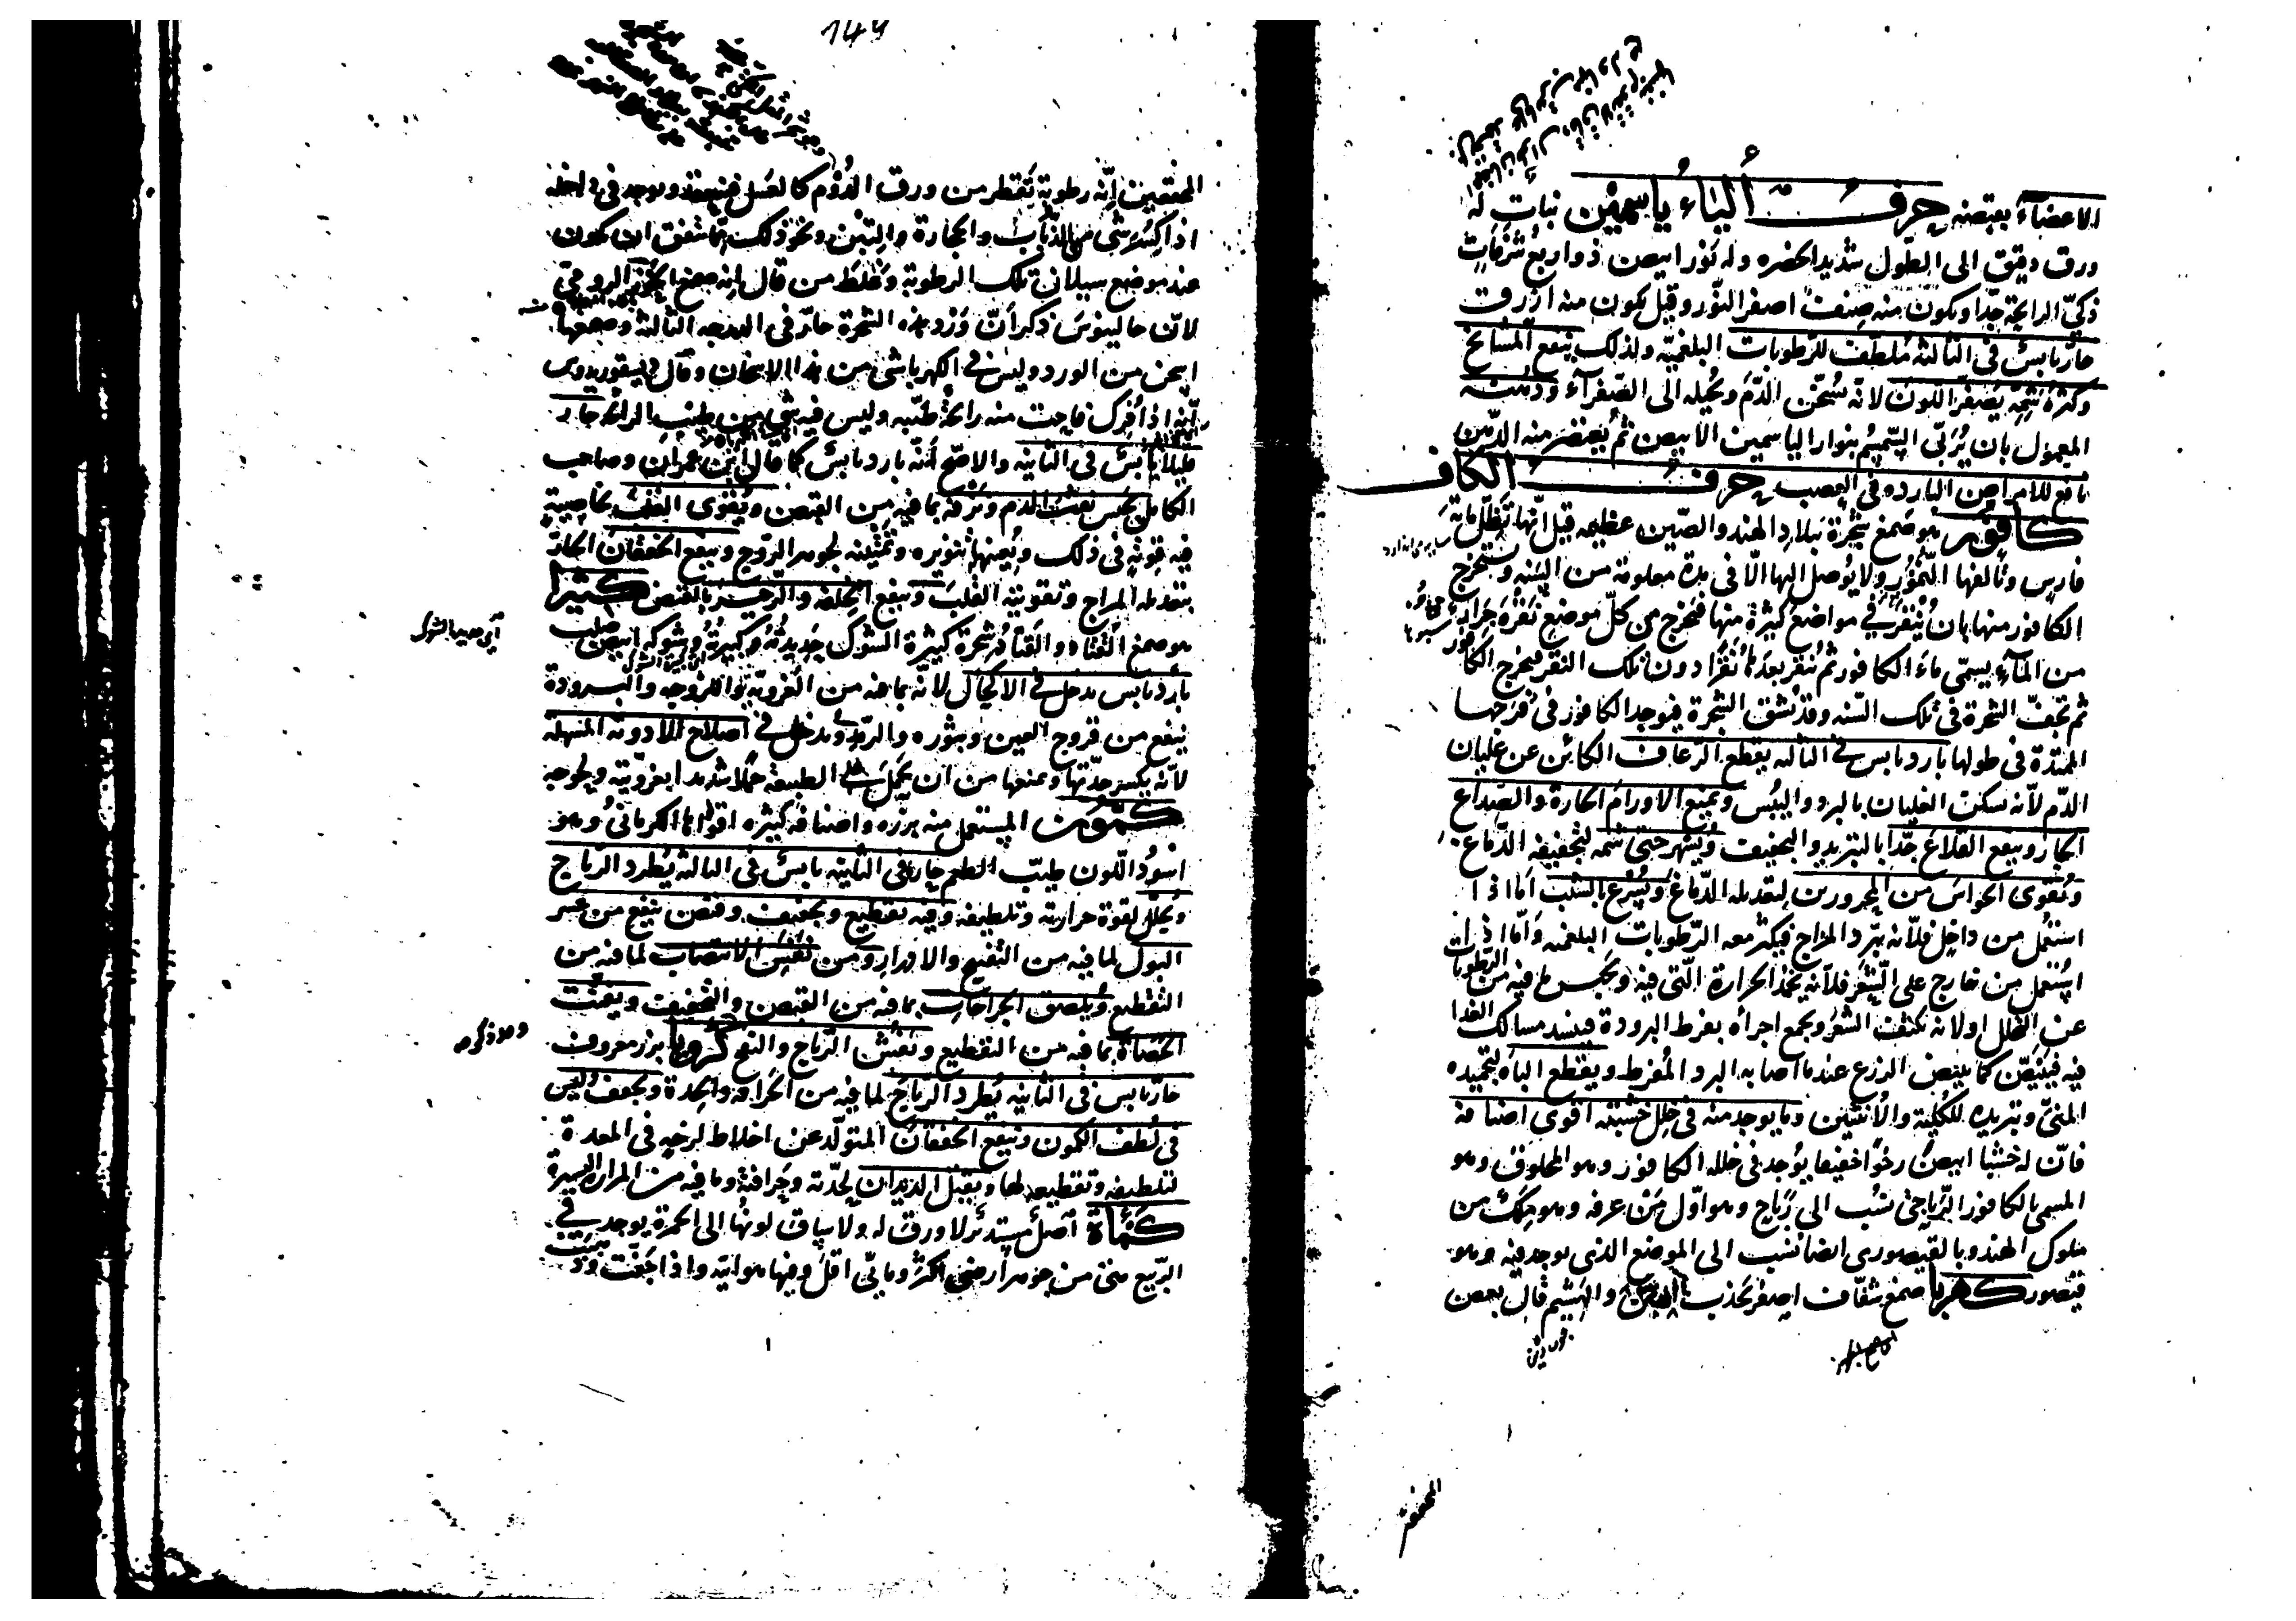 الاعضاء بقبضه حرف الياء ياسمين نبات له
ورق دقيق الى الطول شديد الخضره وله نور ابيض ذو اربع شرفات
ذكى الرايحة جدا ويكون منه صنف اصفر النور وقيل يكون منه ازرق
حار يابس فى الثالثة ملطف للرطوبات البلغمية ولذلك ينفع المشايخ
وكثرة شمه يصفر اللون لانه يسخن الدم ويحيله الى الصفرآء ودهنه
المعمول بان يربى السمسم بنوار الياسمين الابيض ثم يعتصر منه الدهن
نافع للامراض البارده فى العصب حرف الكاف
كافور هو صمغ شجرة ببلاد الهند والصين عظيمه قيل انها تظل مائة
فارس وتالفها النمور ولا يوصل اليها الا فى مدة معلومة من السنه ويستخرج
الكافور منها بان ينقر فى مواضع كثيرة منها فيخرج من كل موضع نقرة
من المآء يسمى ماء الكافور ثم ينقر بعد نقرا دون تلك النقر فيخرج الكافور
ثم تجف الشجرة فى تلك السنه وقد تشق الشجرة فيوجد الكافور فى فرجها
الممتدة فى طولها بارد يابس فى الثالثه يقطع الرعاف الكائن عن غليان
الدم لانه يسكن الغليان بالبرد واليبس ويمنع الاورام الحارة والصداع
الحار وينفع القلاع جدا بالتبريد والتجفيف ويسهر حتى شمه لتجفيفه الدماغ
ويقوى الحواس من المحرورين لتعديله الدماغ ويسرع بالشيب اما اذا
استعمل من داخل فلانه يبرد المزاج فيكثر معه الرطوبات البلغميه واما اذا
استعمل من خارج على الشعر فلانه يخمد الحرارة التى فيه ويحبس ما فيه من الرطوبات
عن التحلل او لانه يكثف الشعر ويجمع اجزاه بفرط البرودة فينسد مسالك الغذا
فيه فيبيض كما يبيض الزرع عند ما اصابه البرد المفرط ويقطع الباه بتجميده
المنى وتبريده للكلية والانثيين وما يوجد منه فى خلل خشبته اقوى اصنافه
فان له خشبا ابيض رخوا خفيفا يوجد فى خلله الكافور وهو المخلوق وهو
المسمى بالكافور الرباحى نسب الى رباح وهو اول من عرفه وهو ملك من
ملوك الهند وبالقيصورى ايضا نسب الى الموضع الذى يوجد فيه وهو
قيصور كهربا صمغ شفاف اصفر يجذب التبن والهشيم قال بعض
149
المحققين انه رطوبة تقطر من ورق الدوم كالعسل فينعقد ويوجد فى داخله
اذا كسر شى من الذباب والحجارة والتبن ونحو ذلك مما يتفق ان يكون
عند موضع سيلان تلك الرطوبة وغلط من قال انه صمغ الحوز الرومى
لان جالينوس ذكر ان ورد هذه الشجرة حار فى الدرجه الثالثه وصمغها
اسخن من الورد وليس فى الكهربا شى من هذا الاسخان وقال ديسقوريدوس
انه اذا فرك فاحت منه رائحة طيبه وليس فيه شى من طيب الرائحه حار
قليلا يابس فى الثانيه والاصح انه بارد يابس كما قال ابن عمران وصاحب
الكامل يحبس نفث الدم ونزفه بما فيه من القبض ويقوى القلب بخاصية
فيه قوية فى ذلك ويعينها تنويره وتمتينه لجوهر الروح وينفع الخفقان الحار
بتعديله المزاج وتقويته القلب وينفع الخلفه والزحير بالقبض كثيرا
هو صمغ القتاد والقتاد شجرة كثيرة الشوك وشوكه ابيض صلب
بارد يابس يدخل فى الاكحال لانه بما فيه من الغروية واللزوجه والبرودة
ينفع من قروح العين وبثوره والرمد ويدخل فى اصلاح الادوية المسهله
لانه يكسر حدتها ويمنعها من ان تحمل على الطبيعه حملا شديدا بغرويته ولزوجه
كمون المستعمل منه بزره واصنافه كثيره اقواها الكرمانى وهو
اسود اللون طيب الطعم حار فى الثانيه يابس فى الثالثه يطرد الرياح
ويحلل لقوة حرارته وتلطيفه وفيه تقطيع وتجفيف وقبض ينفع من عسر
البول لما فيه من التفتيح والادرار ومن نفس الانتصاب لما فيه من
التقطيع ويلصق الجراحات بما فيه من القبض والتجفيف ويفتت
الحصاة بما فيه من التقطيع ويفش الرياح والنفخ كرويا بزر معروف
حار يابس فى الثانيه يطرد الرياح لما فيه من الحرافة والحدة ويجفف وليس
فى لطف الكمون وينفع الخفقان المتولد عن اخلاط لزجه فى المعدة
لتلطيفه وتقطيعه لها ويقتل الديدان لحدته وحرافته وما فيه من المرارة اليسيرة
كمأة اصل مستدير لا ورق له ولا ساق لونها الى الحمرة يوجد فى
الربيع من جوهر ارضى اكثر ومائى اقل وفيها هوائيه واذا جففت